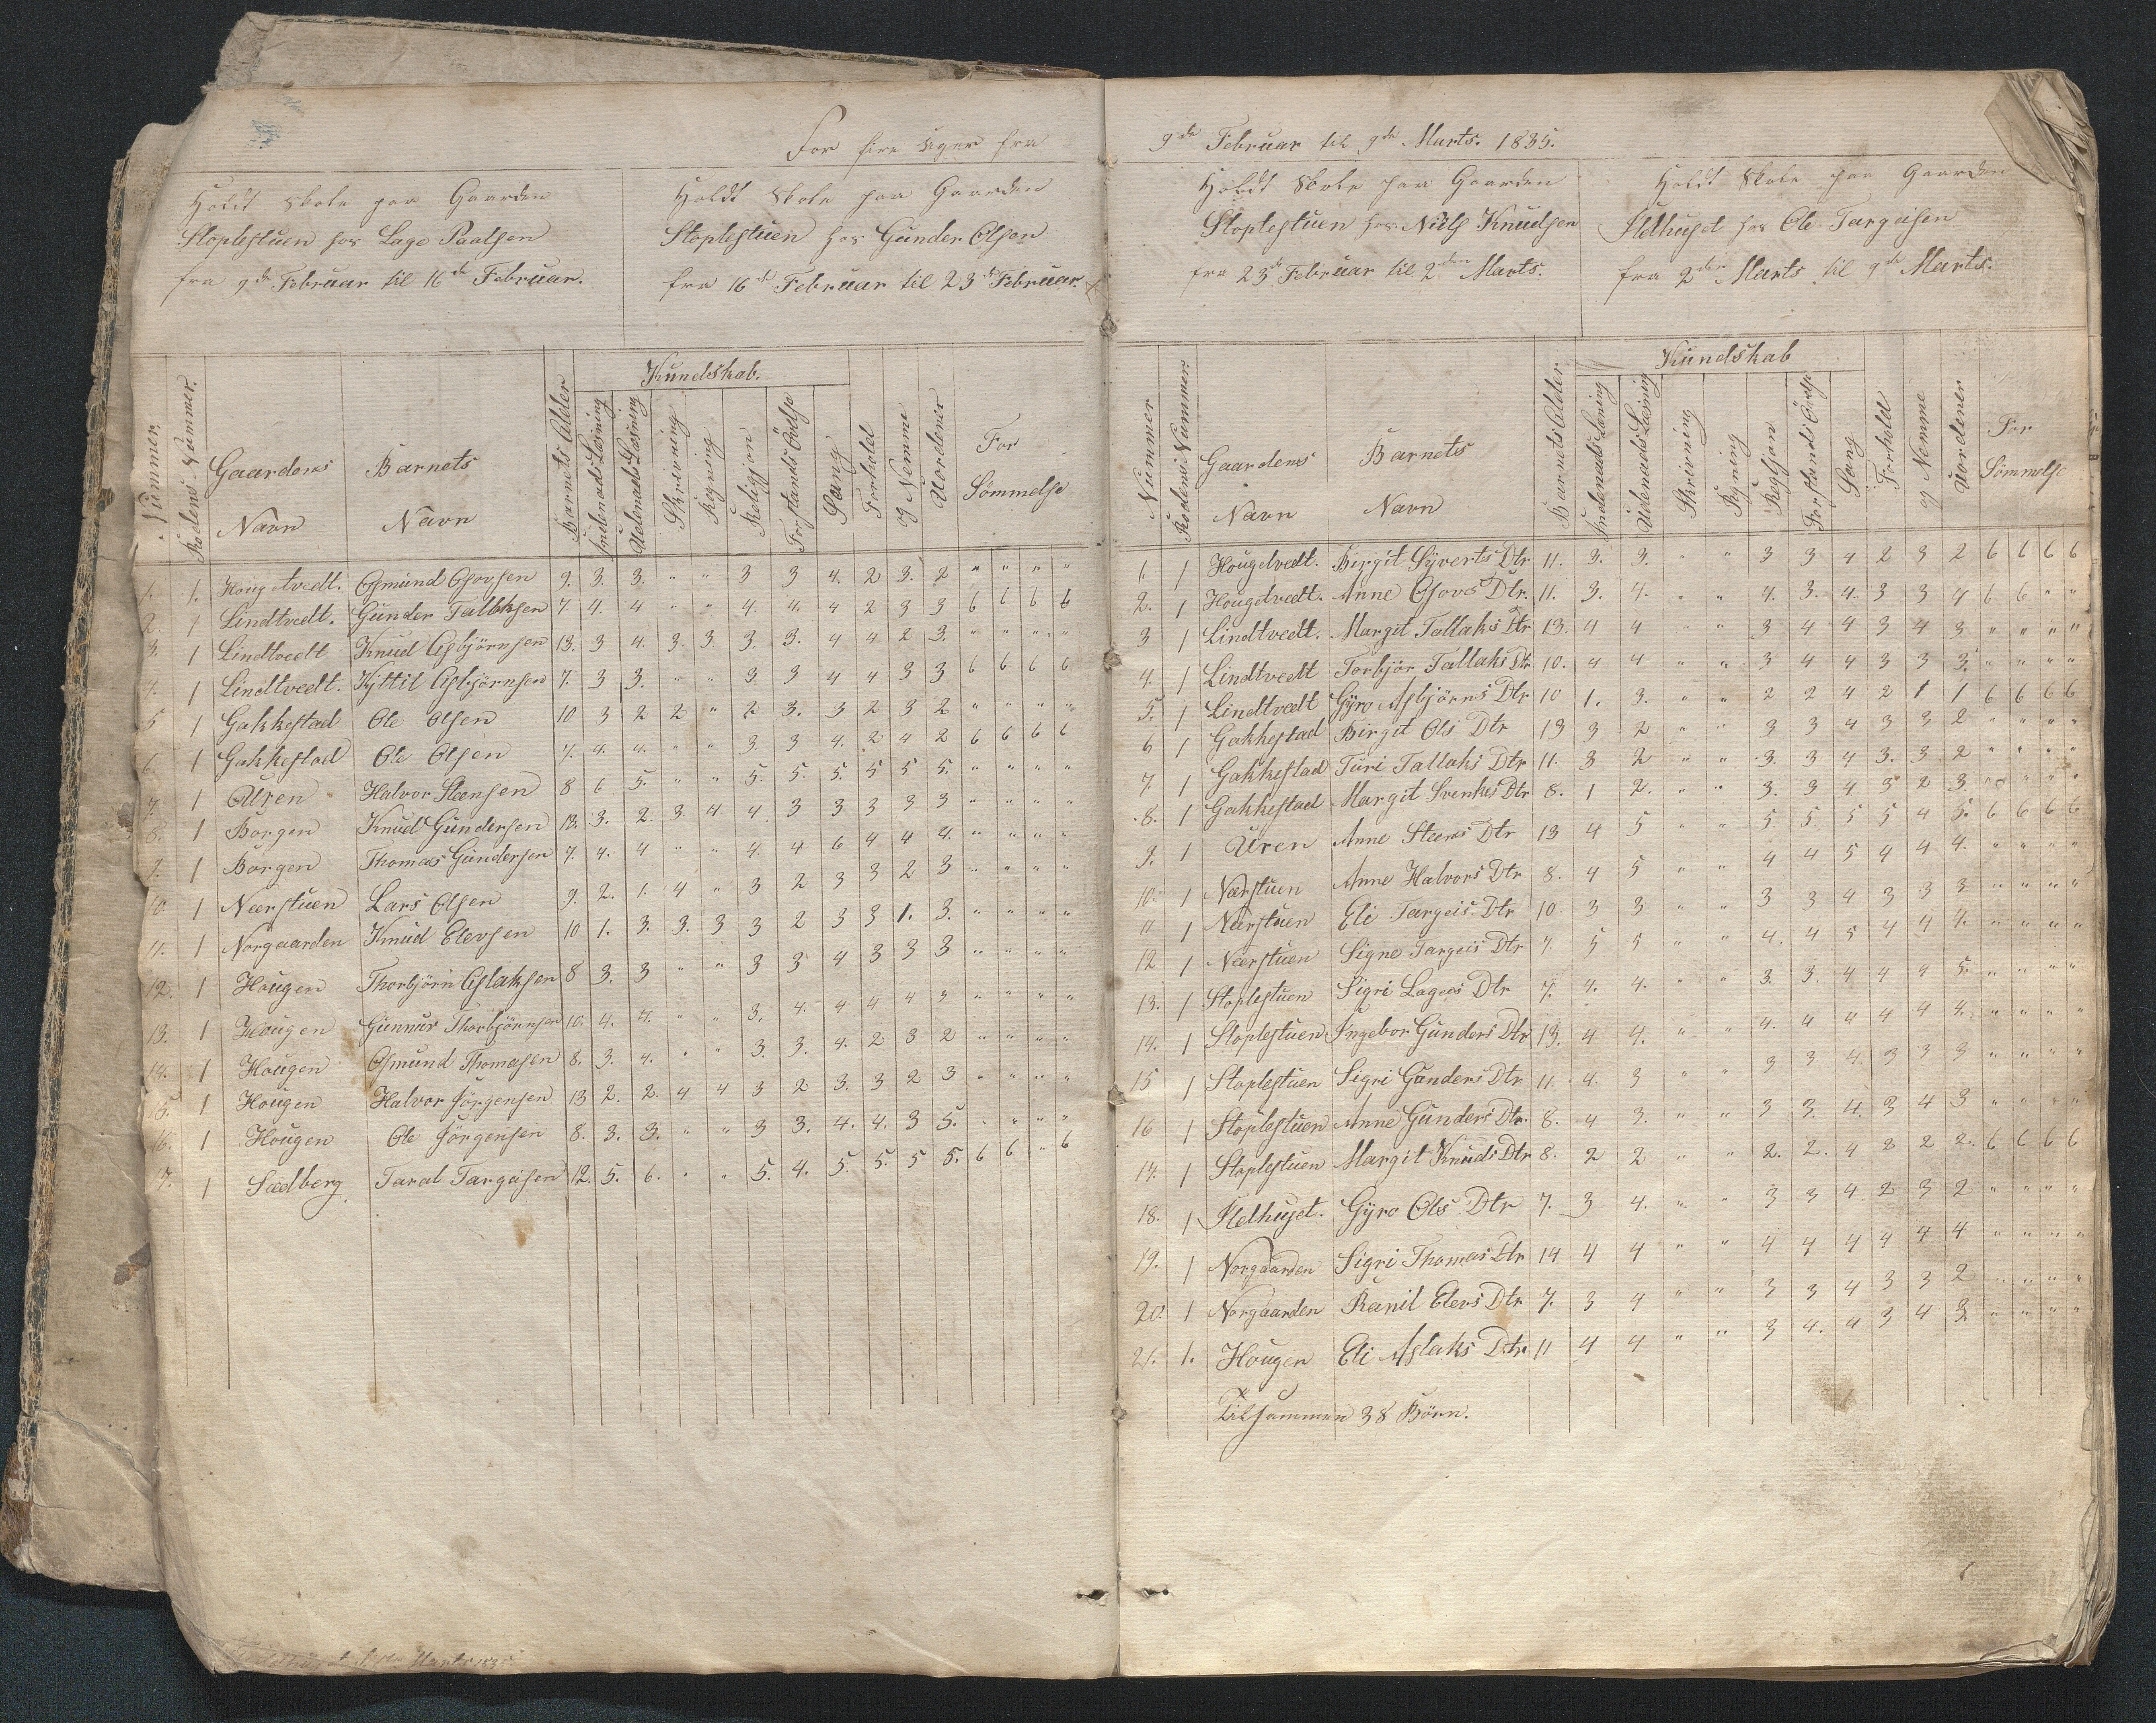 For fire Uger fra
Holdt Skole paa Gaarden
Stoplestuen hos Lage Paalsen
fra 9de Februar til 16de Februar.
Holdt Skole paa Gaarden
Stoplestuen hos Gunder Olsen
fra 16de Februar til 23de Februar.
Nummer. Rodens Nummer. Gaardens Navn Barnets Navn Barnets Alder Kundskab. Indenads Læsning Udenads Læsning Skrivning Regning Religjon Forstands Övelse Sang Forhold og Nemme Uordener For Sömmelse
1. 1. Hougetvedt. Osmund Osovsen 9. 3. 3. " " 3 3 4. 2 3. 2 " " " "
2. 1 Lindtvedt. Gunder Tallaksen 7 4. 4 " " 4. 4. 4 2 3 3 6 6 6 6
3. 1 Lindtvedt Knud Asbjörnsen 13. 3 4. 3. 3 3. 3. 4 4 2 3. " " " "
4. 1 Lindtvedt. Kyttil Asbjörnsen 7. 3 3. " " 3 3 4 4 3 3 6 6 6 6
5 1 Gakkestad Ole Olsen 10 3 2 2 " 2 3. 3 2 3 2 " " " "
6. 1 Gakkestad Ole Olsen 7. 4. 4. " " 3. 3 4. 2 4 2 6 6 6 6
7. 1 Uren Halvor Steensen 8 6 5. " " 5. 5. 5. 5 5 5. " " " "
8. 1 Borgen Knud Gundersen 13. 3. 2. 3. 4 4. 3 3 3 3 3 " " " "
9. 1 Borgen Thomas Gundersen 7. 4. 4 " " 4. 4 6 4 4 4. " " " "
10. 1 Nærstuen Lars Olsen 9. 2. 1. 4 " 3 2 3 3 2 3 " " " "
11. 1 Norgaarden Knud Elevsen 10 1. 3. 3. 3 3 2 3 3 1. 3. " " " "
12. 1 Hougen Thorbjörn Aslaksen 8 3. 3 " " 3 3 4 3 3 3 " " " "
13. 1 Hougen Gunnar Thorbjörnsen 10. 4. 4. " " 3. 4. 4 4 4 3 " " " "
14. 1 Hougen Osmund Thomasen 8. 3. 4. " " 3. 3. 4. 2 3 2 " " " "
15. 1 Hougen Halvor Jörgensen 13 2. 2. 4 4 3 2 3. 3 2 3 " " " "
16. 1 Hougen Ole Jörgensen 8. 3. 3. " " 3 3. 4. 4. 3 5. " " " "
17. 1 Sædberg Taral Targeisen 12. 5. 6. " " 5. 4. 5. 5. 5 5. 6 6 " 6
9de Februar til 9de Marts. 1835.
Holdt Skole paa Gaarden
Stoplestuen hos Niels Knudsen
fra 23de Februar til 2den Marts.
Holdt Skole paa Gaarden
Ildhuset hos Ole Targeisen
fra 2den Marts til 9de Marts.
Nummer Rodens Nummer. Gaardens Navn Barnets Navn Barnets Alder Kundskab Indenads Læsning Udenads Læsning Skrivning Regning Religjon Forstands Övelse Sang Forhold og Nemme Uordener For Sömmelse
1. 1 Hougetvedt. Birgit Syverts Dtr 11. 3. 3. " " 3 3 4 2 3 2 6 6 6 6
2. 1 Hougetvedt. Anne Osovs Dtr. 11. 3. 4. " " 4. 3. 4. 3 3 4 6 6 " "
3 1 Lindtvedt. Margit Tallaks Dtr 13. 4 4 " " 3 4 4 3 4 3 " " " "
4. 1 Lindtvedt Torbjör Tallaks Dtr 10. 4 4 " " 3 4 4 3 3 3. " " " "
5. 1 Lindtvedt Gyro Asbjörns Dtr 10 1. 3. " " 2 2 4 2 1 1 6 6 6 6
6 1 Gakkestad Birgit Ols Dtr 13 3 2 " " 3 3 4 3 3 2 " " " "
7. 1 Gakkestad Turi Tallaks Dtr 11. 3 2 " " 3. 3 4 3. 3 2 " " " "
8. 1 Gakkestad Margit Svenkes Dtr 8. 1 2. " " 3. 3 4 3 2 3 " " " "
9. 1 Uren Anne Steens Dtr 13 4 5 " " 5 5. 5 5 4 5. 6 6 6 6
10. 1 Nærstuen Anne Halvors Dtr 8. 4 5 " " 4 4 5 4 4 4. " " " "
11 1 Nærstuen Eli Targeis Dtr 10. 3 3 " " 3 3 4 3 3 3 " " " "
12 1 Nærstuen Signe Targeis Dtr 7. 5 5 " " 4. 4 5 4 4 4. " " " "
13. 1 Stoplestuen Sigri Lages Dtr 7. 4. 4. " " 3. 3. 4 4 4 5. " " " "
14. 1 Stoplestuen Ingebor Gunders Dtr 13. 4 4. " " 4. 4 4 4 4 4. " " " "
15 1 Stoplestuen Sigri Gunders Dtr 11. 4. 3 " " 3 3 4. 3 3 3 " " " "
16 1 Stoplestuen Anne Gunders Dtr. 8. 4 3. " " 3 3. 4. 3 4 3 " " " "
17. 1 Stoplestuen Margit Knuds Dtr 8. 2 2 " " 2. 2. 4 2 2 2. 6 6 6 6
18. 1 Ildhuset. Gyro Ols Dtr 7. 3 4. " " 3 3 4 2 3 2 " " " "
19. 1 Norgaarden Sigri Thomas Dtr 14 4 4 " " 4 4 4 4 4 4 " " " "
20. 1 Norgaarden Ranil Elevs Dtr 7. 3 4 " " 3 3 4 3 3 2 " " " "
21. 1. Hougen Eli Aslaks Dtr. 11 4 4 " " 3 4. 4 3 4 3 " " " "
Tilsammen 38 Börn.